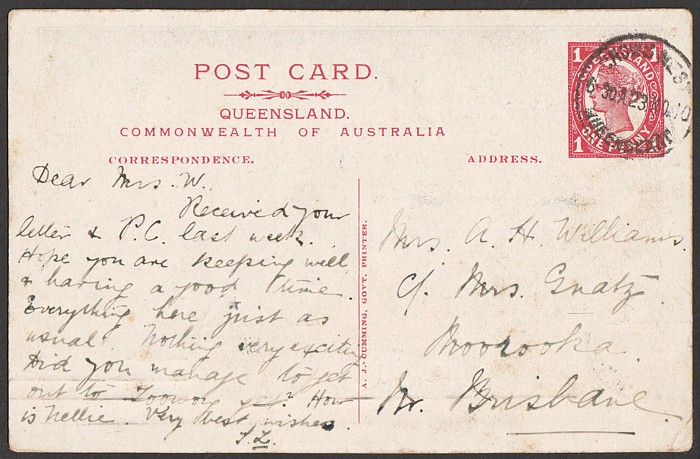 POST CARD.
QUEENSLAND.
COMMONWEALTH OF AUSTRALIA
CORRESPONDENCE.
ADDRESS.
1 QUEENSLAND 1
1 ONE PENNY 1
6-30A 23 NO 10
QUEENSLAND
Dear Mrs. W.
Received your
letter & P.C. last week.
Hope you are keeping well
& having a good time.
Everything here just as
usual. Nothing very exciting
Did you manage to get
out to Toowong yet? How
is Nellie. Very best wishes.
A. J. CUMMING, GOVT. PRINTER.
Mrs. A. H. Williams.
c/. Mrs.
Moorooka.
Nr. Brisbane.